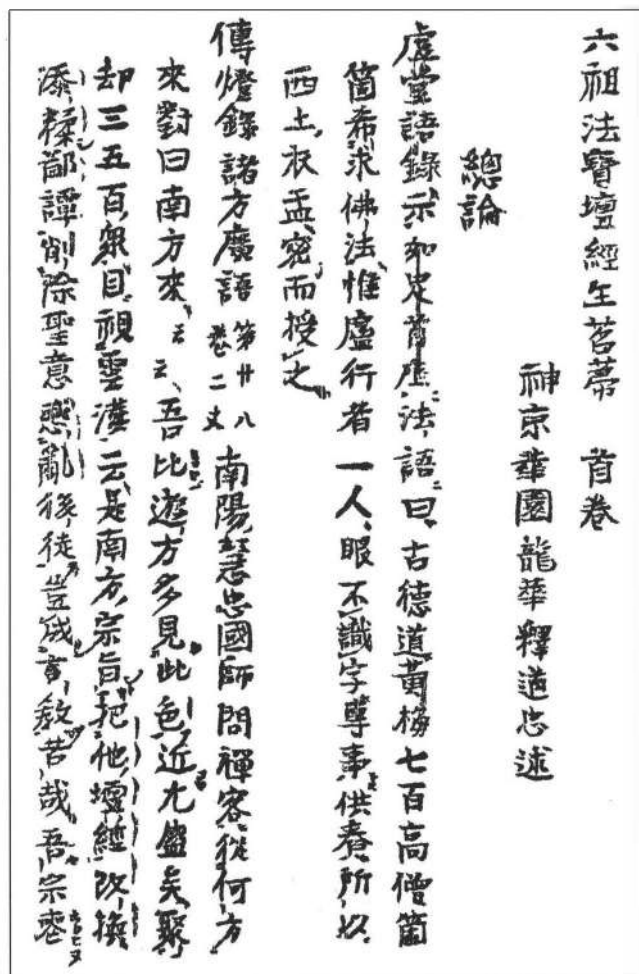 六祖法寶壇經生苕菷 首卷
神京華園龍華釋道忠述
總論
虛堂語錄示如足首座法語曰古德道黃梅七百高僧箇
箇希求佛法惟盧行者一人眼不識字專事供養所以
西土衣盂密而授之
傳燈錄諸方廣語 第廿八卷二丈 南陽慧忠國師問禪客從何方
來對曰南方來云云吾比遊方多見此色近尤盛矣聚
却三五百衆目視雲漢云是南方宗旨把他壇經改換
添糅鄙譚削除聖意亂後徒豈成言教苦哉吾宗喪